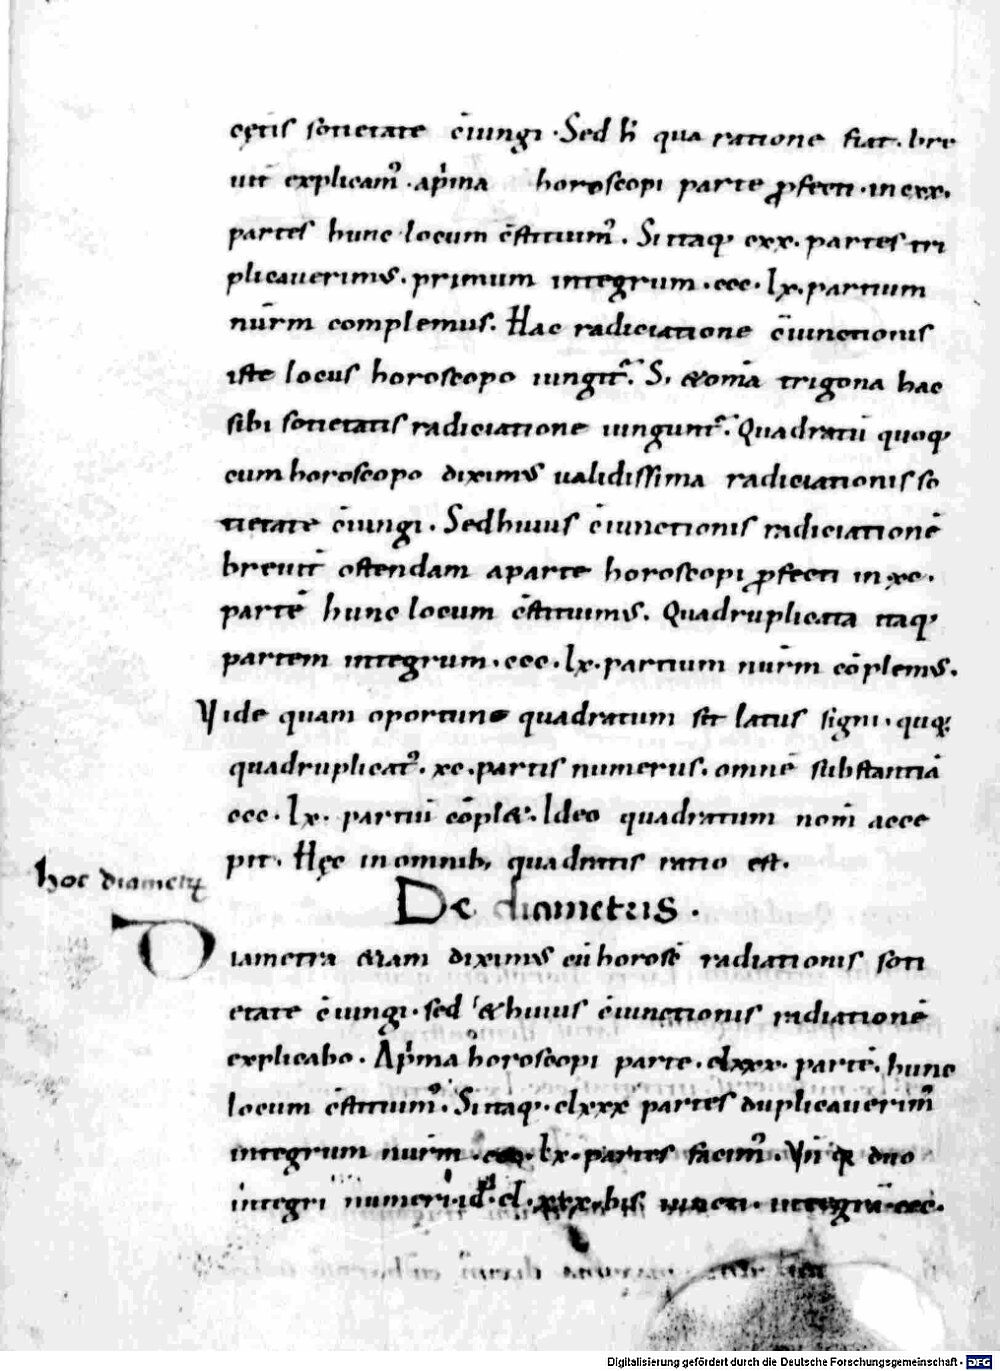 cętis sotietate c̄iungi · Sed h̄ qua ratione fiat · bre
uit̄ explicam᾿ · ap̓ma horoscopi parte ꝓfecti · in cxx ·
partes hunc locum c̄stituim᾿ . Si itaq; cxx · partes tri
plicauerimus · primum integrum · ccc · lx · partium
num̄rm complemus . Hac radiciatione c̄iunctionis
iste locus horoscopo iungit᾿ . Sic & om̄ia trigona hac
sibi sotietatis radiciatione iungunt᾿ . Quadratū quoq;
cum horoscopo diximus ualidissima radiciationis so
tietate c̄iungi . Sed huius c̄iunctionis radiciationē
breuit̄ ostendam a parte horoscopi ꝓfecti in xc ·
partē hunc locum c̄stituimus . Quadruplicata itaq;
partem integrum · ccc · lx · partium num̄rm cōplemus .
Vide quam oportune quadratum sit latus signi · quq;
quadruplicat᾿ · xc · partis numerus · omnē substantiā
ccc · lx · partiū cōpl& · Ideo quadratum nom̄ acce
pit · Hęc in omnib; quadratis ratio est .
hoc diametrꝝ
De diametris .
Diametra &iam diximus cū horosc̄ radiationis soti
etate c̄iungi · sed & huius c̄iunctionis radiationē
explicabo . Ap̓ma horoscopi parte · clxxx · partē · hunc
locum c̄stituim᾿ . Si itaq; · clxxx partes duplicauerim᾿
integrum num̄rm · ccc · lx · partes facim᾿ . duo
integri numeri · id᾿ · cl · xxx · bis iuncti · integrū · ccc ·